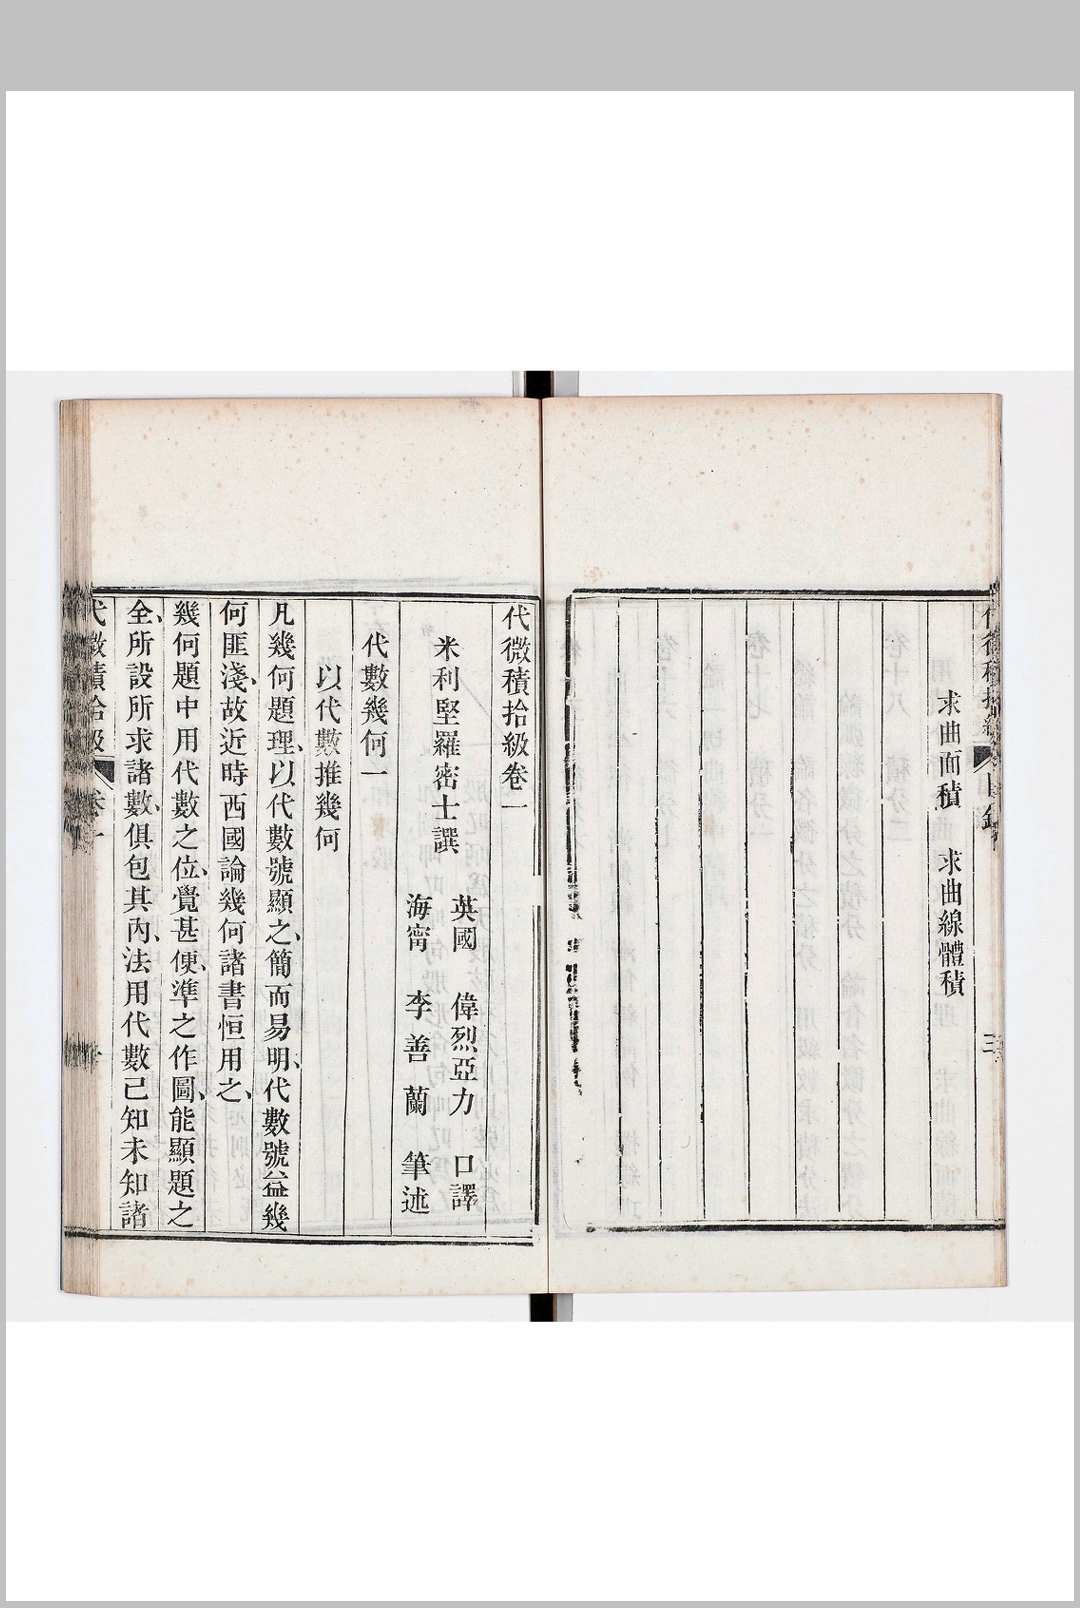 代微積拾級 目錄 三
求曲面積 求曲線體積
代微積拾級卷一
米利堅羅密士譔
英國 偉烈亞力 口譯
海甯 李善蘭 筆述
代數幾何一
以代數推幾何
凡幾何題理、以代數號顯之、簡而易明、代數號益幾
何匪淺、故近時西國論幾何諸書恒用之、
幾何題中用代數之位、覺甚便、準之作圖、能顯題之
全、所設所求諸數、俱包其內、法用代數已知未知諸
代微積拾級 卷一 一